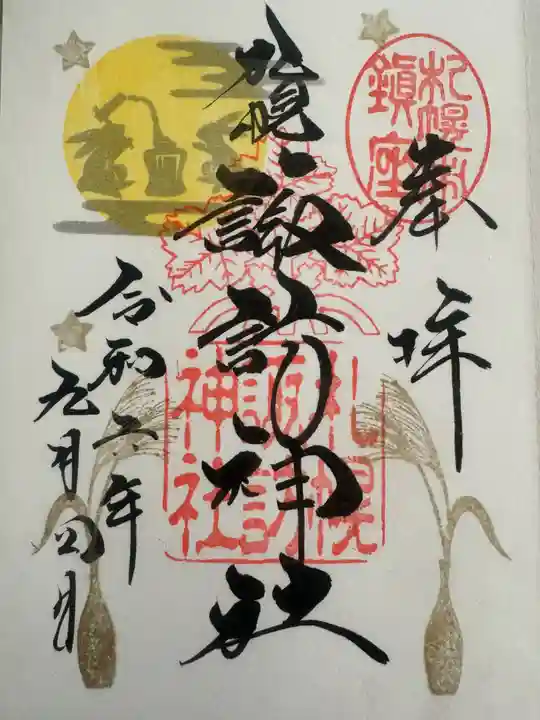 奉拝
札幌
鎮座
札幌諏訪神社
札幌
諏訪
神社
令和六年
九月四日